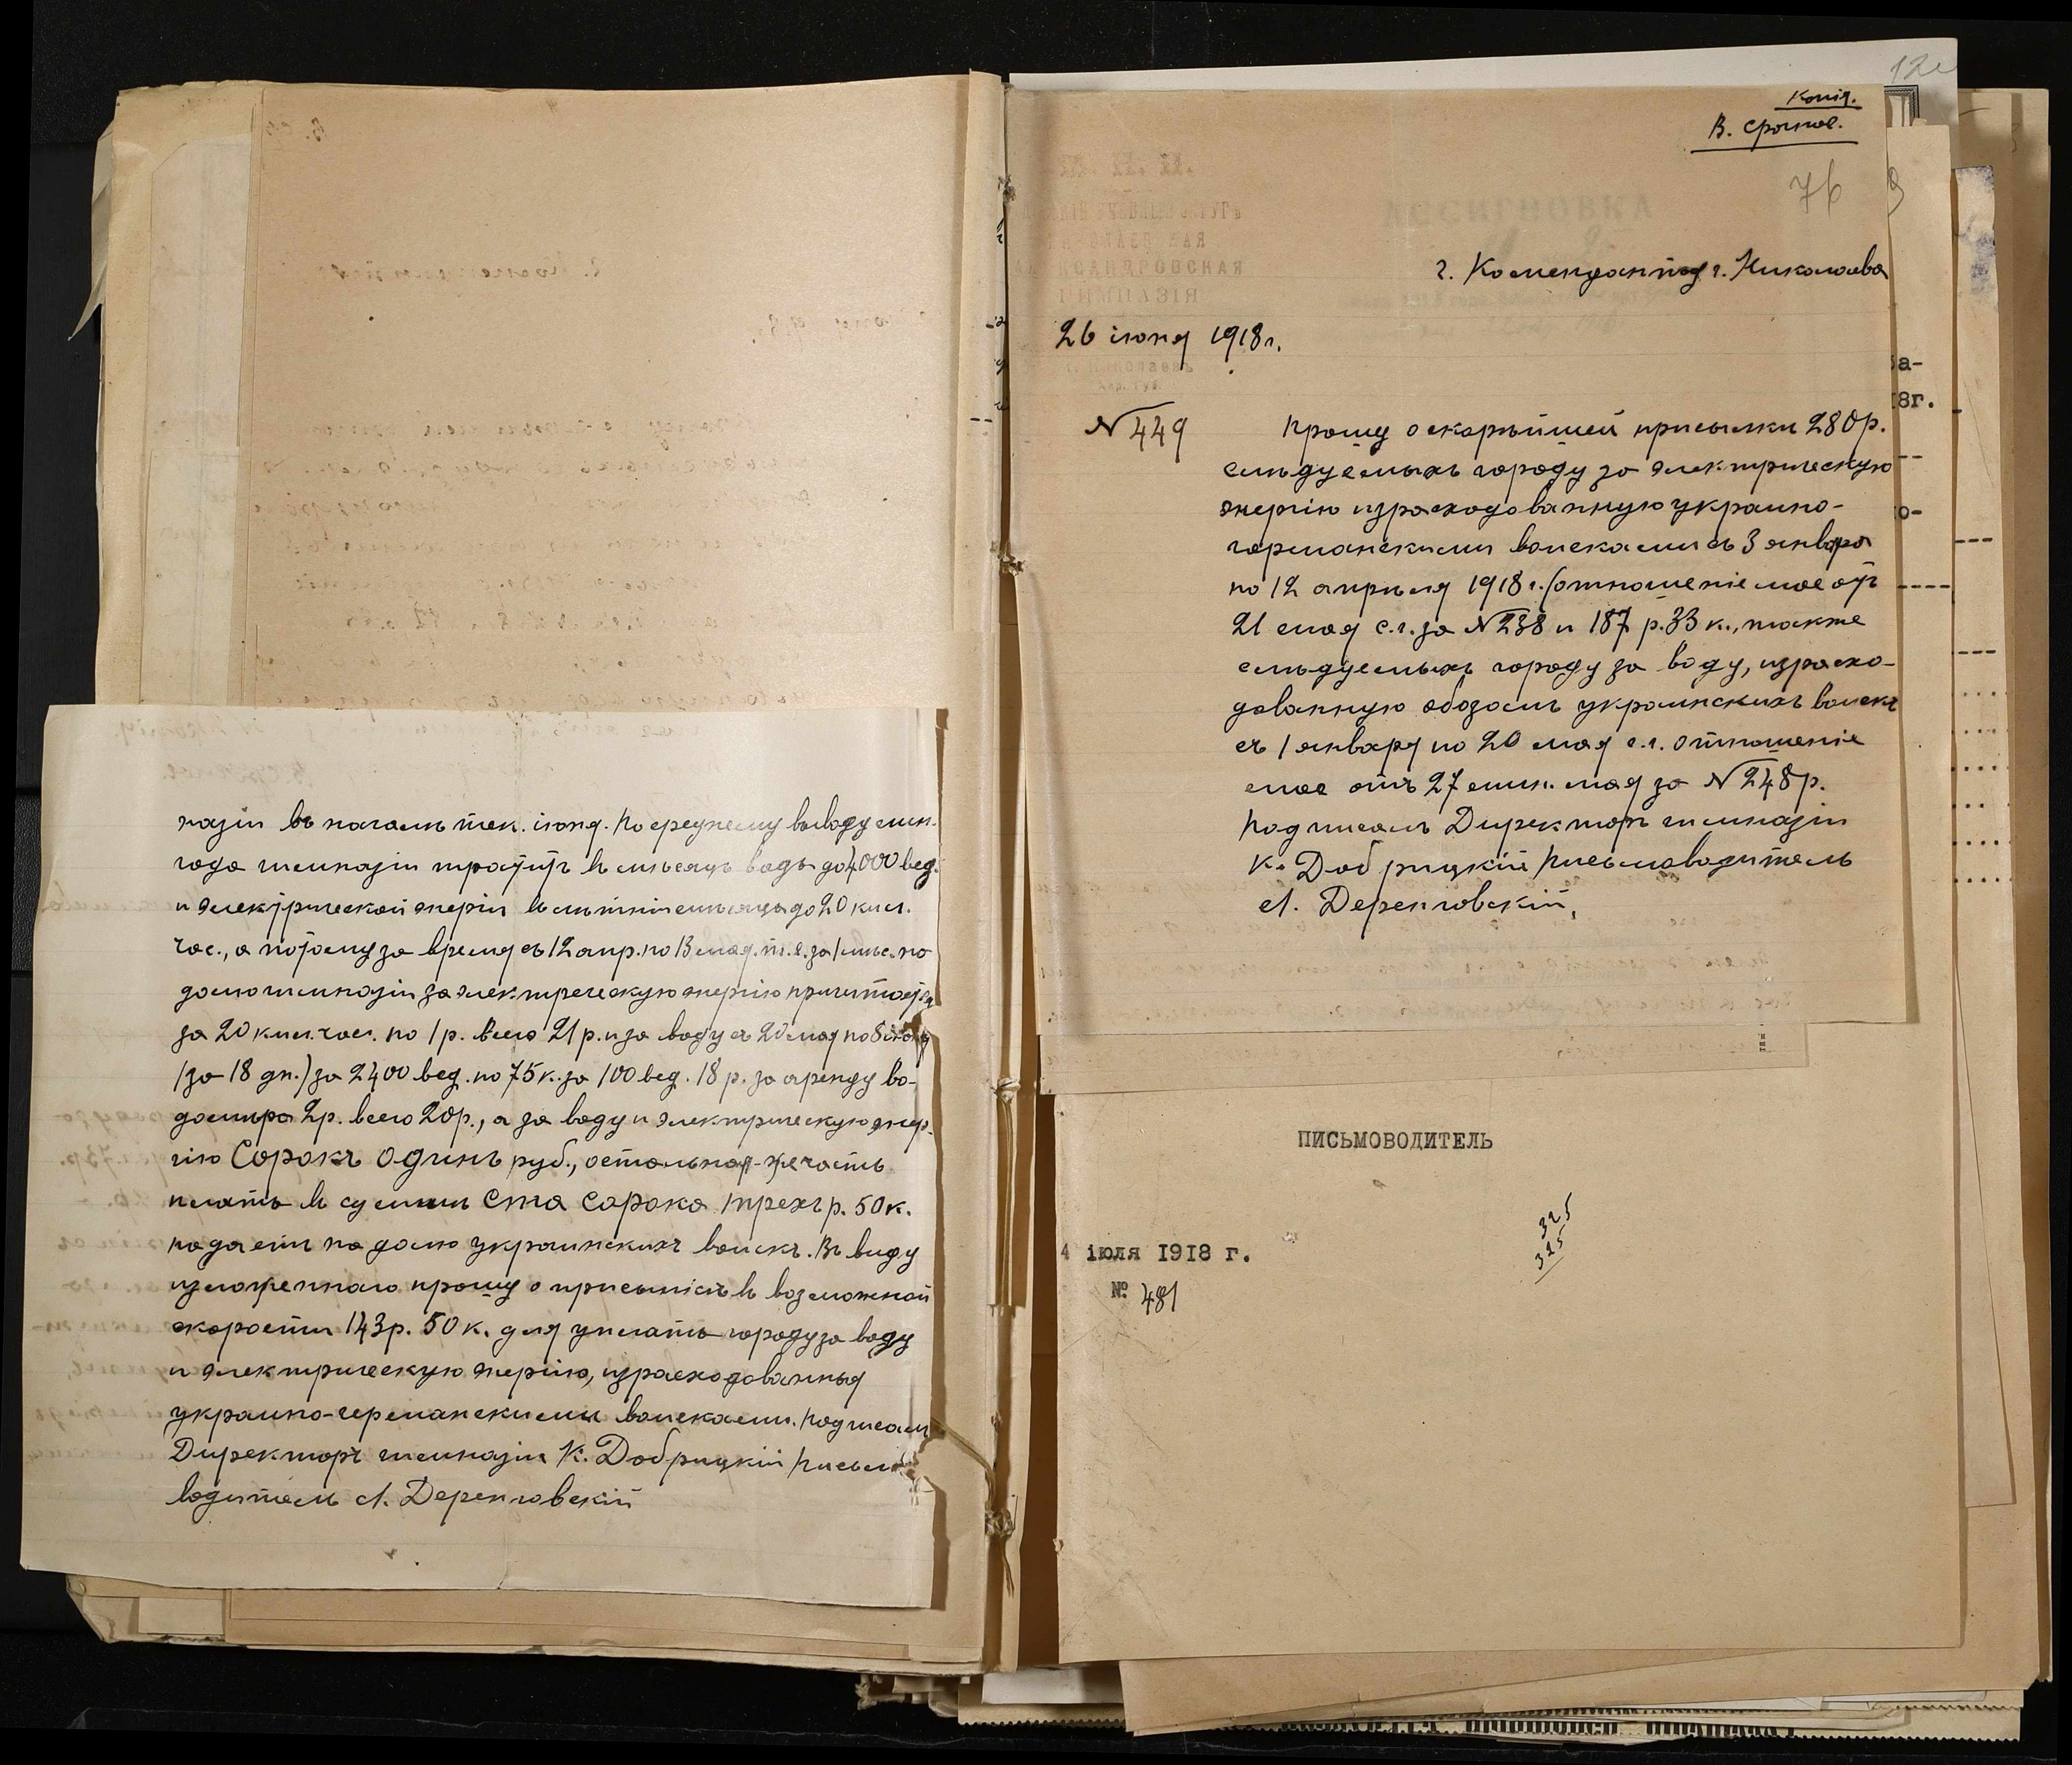 назіи въ началѣ тек. іюня. По среднему выводу мин.
года гимназіи тратитъ въ мѣсяцъ воды до 4000 вед.
и электрической энергіи въ лѣтніе мѣсяцы до 20 кил.
час., а потому за время съ 12 апр. по 13 мая, т.е. за 1 мѣс. по
долю гимназіи за электрическую энергію причитается
за 20 кил. час. по 1 р. всего 21 р. и за воду съ 20 мая по 8 іюня
/за 18 дн./ за 2400 вед. по 75 к. за 100 вед. 18 р. за аренду во-
домѣра 2 р. всего 20 р., а за воду и электрическую энер-
гію Сорокъ одинъ руб., остальная же часть
платы въ суммѣ Ста сорока трехъ р. 50 к.
падаетъ на долю украинскихъ войскъ. Въ виду
изложеннаго прошу о присылкѣ въ возможной
скорости 143 р. 50 к. для уплаты городу за воду
и электрическую энергію, израсходованныя
украино-германскими войсками. Подписалъ
Директоръ гимназіи К. Добрицкій Письмо
водитель А. Деренговскій
Копія.
В. Срочное.
76
г. Коменданту г. Николаева
26 іюня 1918 г.
№ 449
Прошу о скорѣйшей присылки 280 р.
слѣдуемыхъ городу за электрическую
энергію израсходованную украино-
германскими войсками съ 3 января
по 12 апрѣля 1918 г. /отношеніе мое отъ
21 мая с.г. за № 238 и 187 р. 33 к., также
слѣдуемыхъ городу за воду, израсхо-
дованную обозомъ украинскихъ войскъ
съ 1 января по 20 мая с.г. отношеніе
мое отъ 27 мин. мая за № 248 р.
Подписалъ Директоръ гимназіи
К. Добрицкій Письмоводитель
А. Деренговскій.
за-
18г.
о-
ПИСЬМОВОДИТЕЛЬ
325
325
4 іюля 1918 г.
№ 481